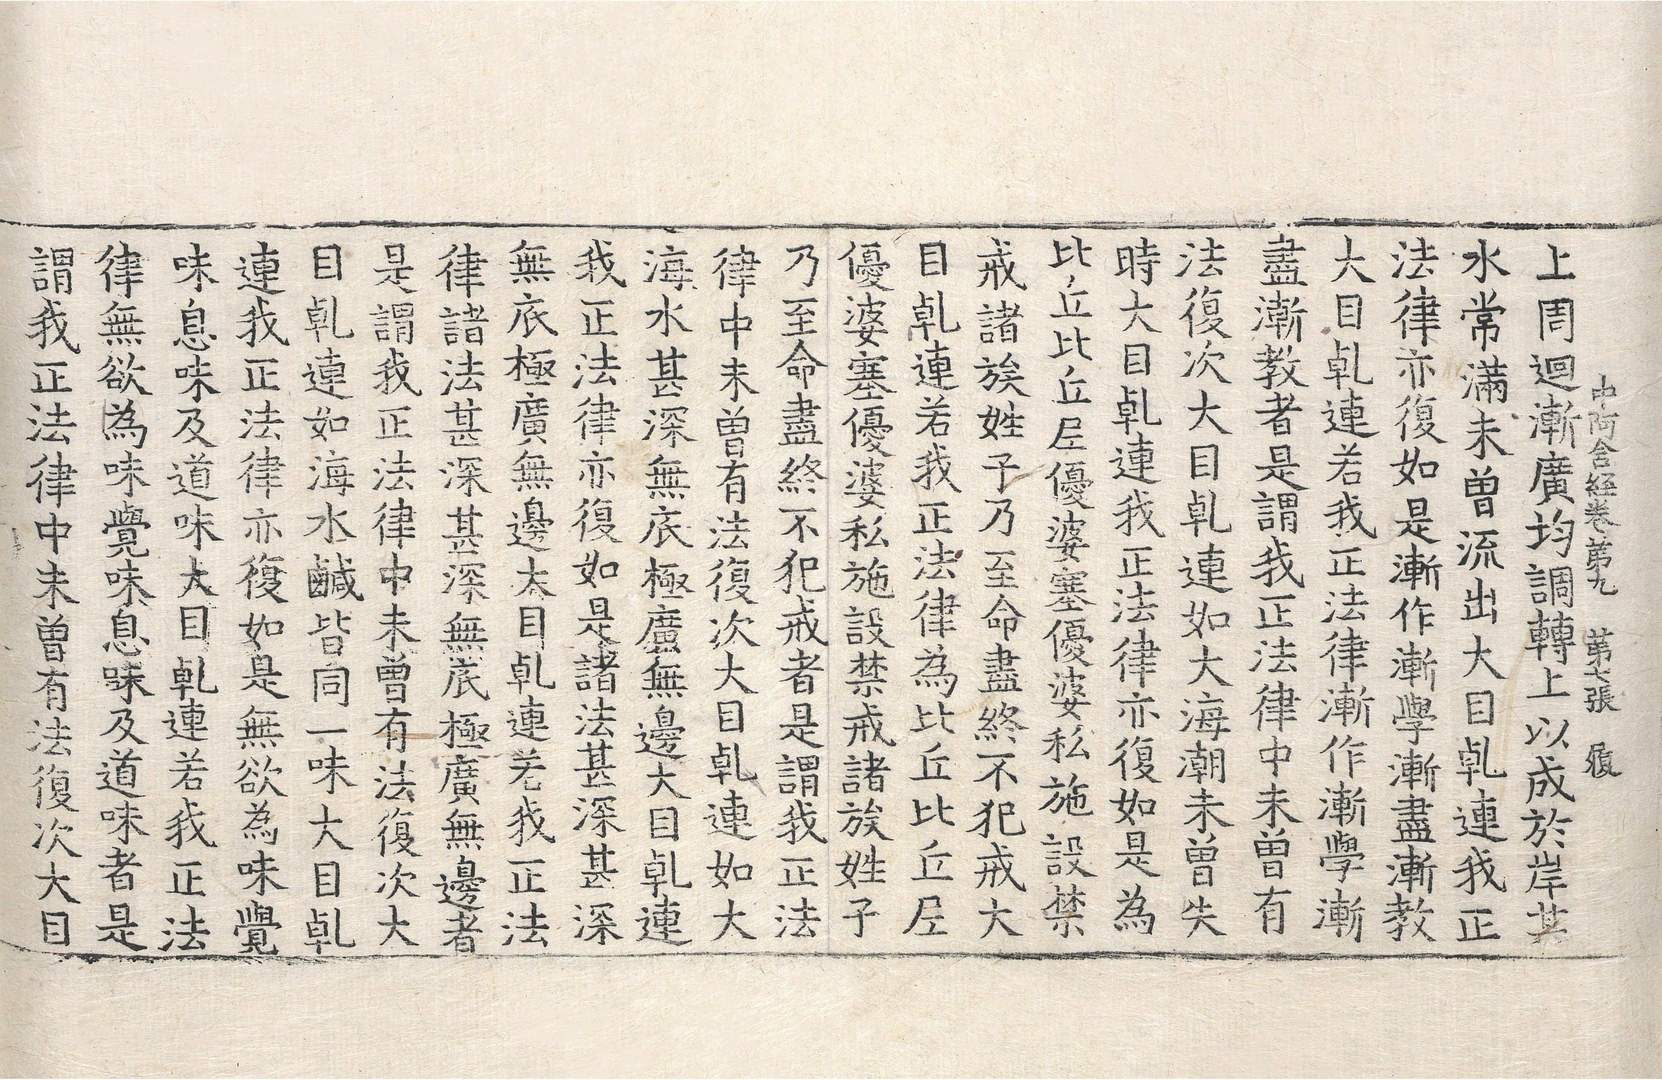 中阿含經卷第九 第七張 履
上周迴漸廣均調轉上以成於岸其
水常滿未曾流出大目乹連我正
法律亦復如是漸作漸學漸盡漸教
大目乹連若我正法律漸作漸學漸
盡漸教者是謂我正法律中未曾有
法復次大目乹連如大海潮未曾失
時大目乹連我正法律亦復如是為
比丘比丘尼優婆塞優婆私施設禁
戒諸族姓子乃至命盡終不犯戒大
目乹連若我正法律為比丘比丘尼
優婆塞優婆私施設禁戒諸族姓子
乃至命盡終不犯戒者是謂我正法
律中未曾有法復次大目乹連如大
海水甚深無底極廣無邊大目乹連
我正法律亦復如是諸法甚深甚深
無底極廣無邊大目乹連若我正法
律諸法甚深甚深無底極廣無邊者
是謂我正法律中未曾有法復次大
目乹連如海水鹹皆同一味大目乹
連我正法律亦復如是無欲為味覺
味息味及道味大目乹連若我正法
律無欲為味覺味息味及道味者是
謂我正法律中未曾有法復次大目